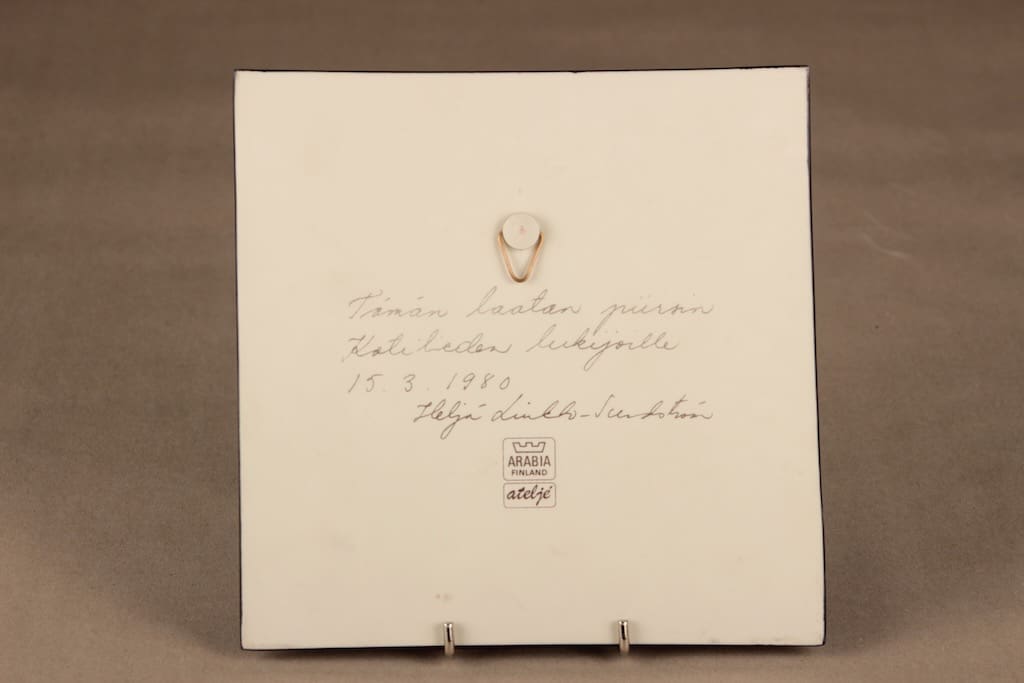 Tämän laatan piirsin
Kotilieden lukijoille
15.3.1980
Heljä Liukko-Sundström
ARABIA
FINLAND
ateljé